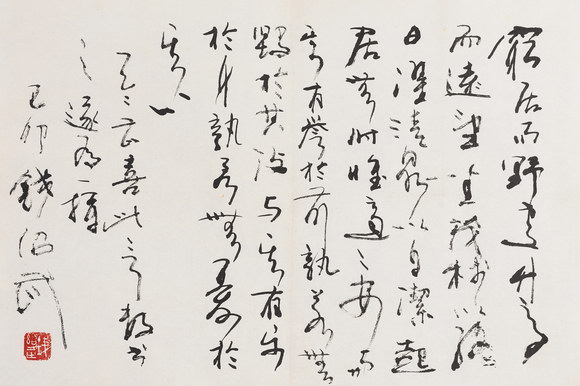 窮居而野處升高
而遠望坐茂樹以終
日濯清泉以自潔起
居無時惟適之安與
其有譽於前孰若無
毀於其後與其有樂
於身孰若無憂於
其心
喜此言
之遂為一揮
己卯錢紹武